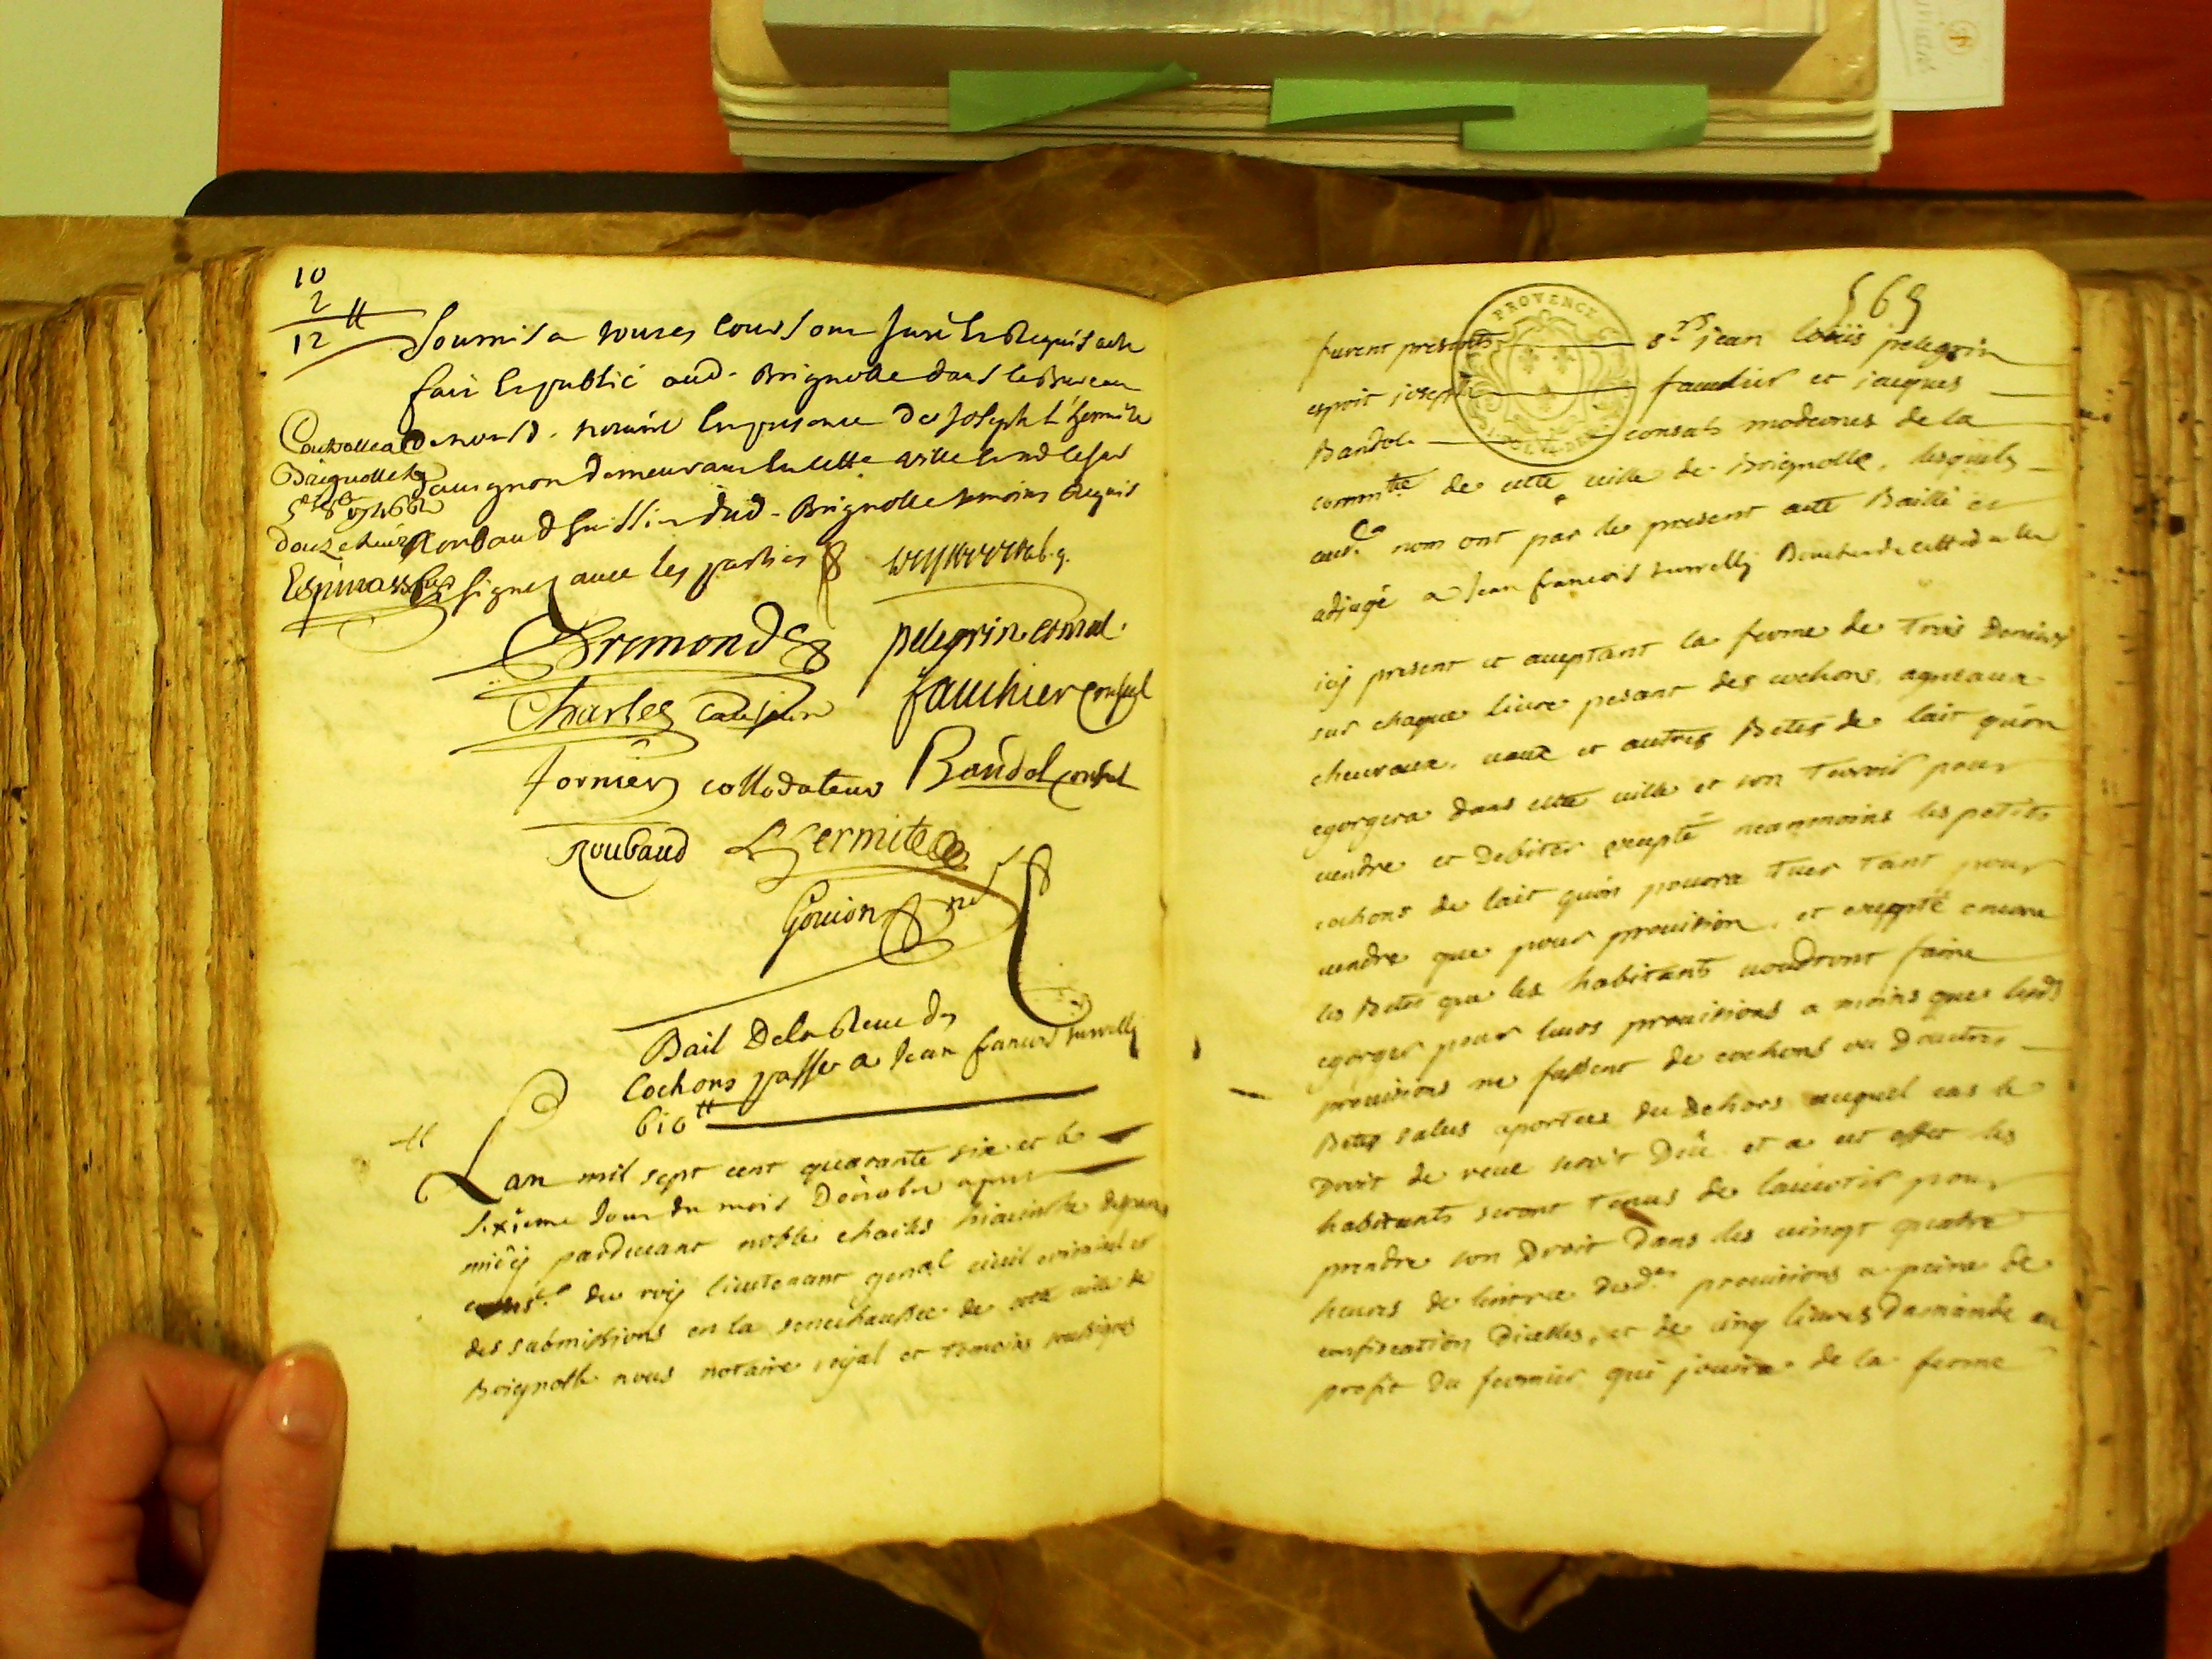 10
2
12 ⁠tt
Soumis a toutes Cours ont juré Et Requis acte
fait Et publié aud. Brignolle dans le Bureau
de nousd. notaire En presence de Joseph L'hermite
d'avignon demeurant En cette ville Et
Roubaud huissier dud. Brignolle temoins Requis
Et signes avec les parties
Controllé a
Brignolle le
douze
Espinassy
Fremond
pelegrin consul.
Charles
fauchier consul
fornier collodateur
Baudol consul
Roubaud
L'hermite
Gouion
Bail De la Reve des
Cochons passé a Jean francois surrelly
610 tt
Lan mil sept cent quarante six et le
sixieme Jour du mois Doctobre apres
midy pardevant noble charles hiacinthe
du roy lieutenant genal civil criminel et
des submissions en la senechaussee de cette ville de
Brignolle nous notaire royal et temoins soussignes
PROVENCE
569
furent presents srs jean loüis pelegrin
esprit joseph fauchier et jacques
Baudol consuls modernes de la
comm.té de cette ville de Brignolle, lesquels
aud. nom ont par le present acte Baillé et
adiugé a Jean francois surrelly Boucher de cette d. ville
icy present et aceptant la ferme de Trois Deniers
sur chaque livre pesant des cochons, agneaux
chevraux, veaux et autres Betes de lait qu'on
egorgera dans cette ville et son Terroir pour
vendre et Debiter excepté neanmoins les petits
cochons de lait qu'on pouvra Tuer Tant pour
vendre que pour provision, et excepté encore
les Betes que les habitants voudront faire
egorger pour leurs provisions a moins que lesd.
provisions ne fussent de cochons ou Dautres
Betes salées aportées du Dehors auquel cas le
Droit de reve seroit Deû et a cet effet les
habitants seront Tenus de lavertir pour
prendre son Droit Dans les vingt quatre
heures de lentrée desd.es provisions a peine de
confiscation Dicelles, et de cinq livres Damande au
profit du fermier qui jouira de la ferme